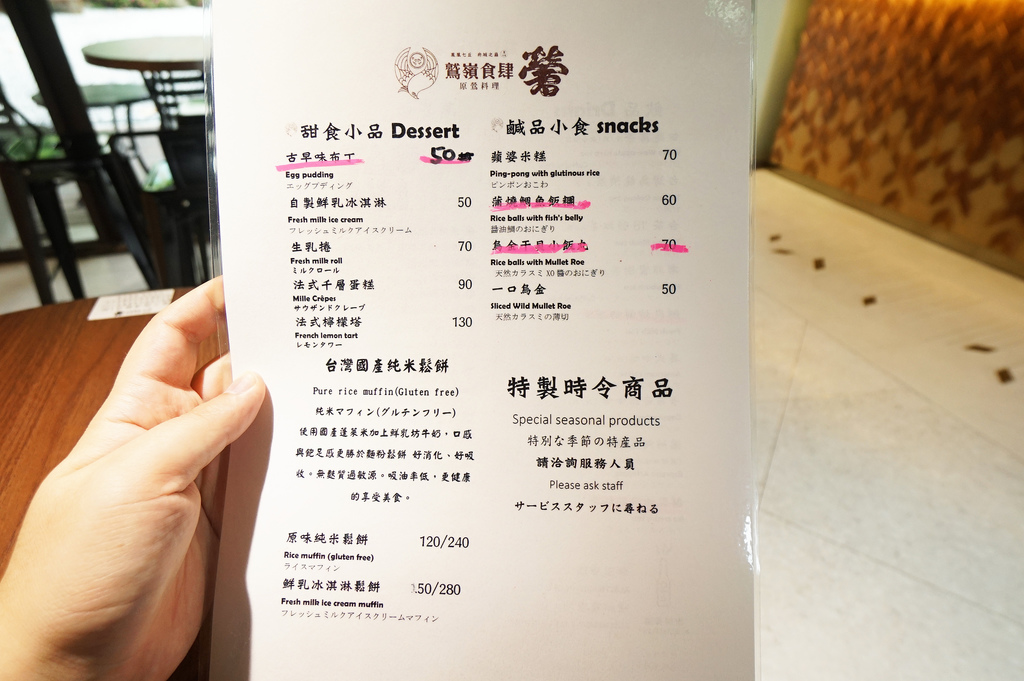 鷲嶺食肆
原鶯料理
甜食小品 Dessert
古早味布丁 50
Egg pudding
エッグプディング
自製鮮乳冰淇淋 50
Fresh milk ice cream
フレッシュミルクアイスクリーム
生乳捲 70
Fresh milk roll
ミルクロール
法式千層蛋糕 90
Mille Crêpes
サウザンドクレープ
法式檸檬塔 130
French lemon tart
レモンタワー
台灣國產純米鬆餅
Pure rice muffin(Gluten free)
純米マフィン(グルチンフリー)
使用國產蓬萊米加上鮮乳坊牛奶，口感
與飽足感更勝於麵粉鬆餅 好消化、好吸
收。無麩質過敏源。吸油率低，更健康
的享受美食。
原味純米鬆餅 120/240
Rice muffin (gluten free)
ライスマフィン
鮮乳冰淇淋鬆餅 150/280
Fresh milk ice cream muffin
フレッシュミルクアイスクリームマフィン
鹹品小食 snacks
蘋婆米糕 70
Ping-pong with glutinous rice
ピンポンおこわ
蒲燒鯛魚飯糰 60
Rice balls with fish's belly
醬油鯛のおにぎり
烏金干貝小飯丸 70
Rice balls with Mullet Roe
天然カラスミ XO 醬のおにぎり
一口烏金 50
Sliced Wild Mullet Roe
天然カラスミの薄切
特製時令商品
Special seasonal products
特別な季節の特産品
請洽詢服務人員
Please ask staff
サービススタッフに尋ねる